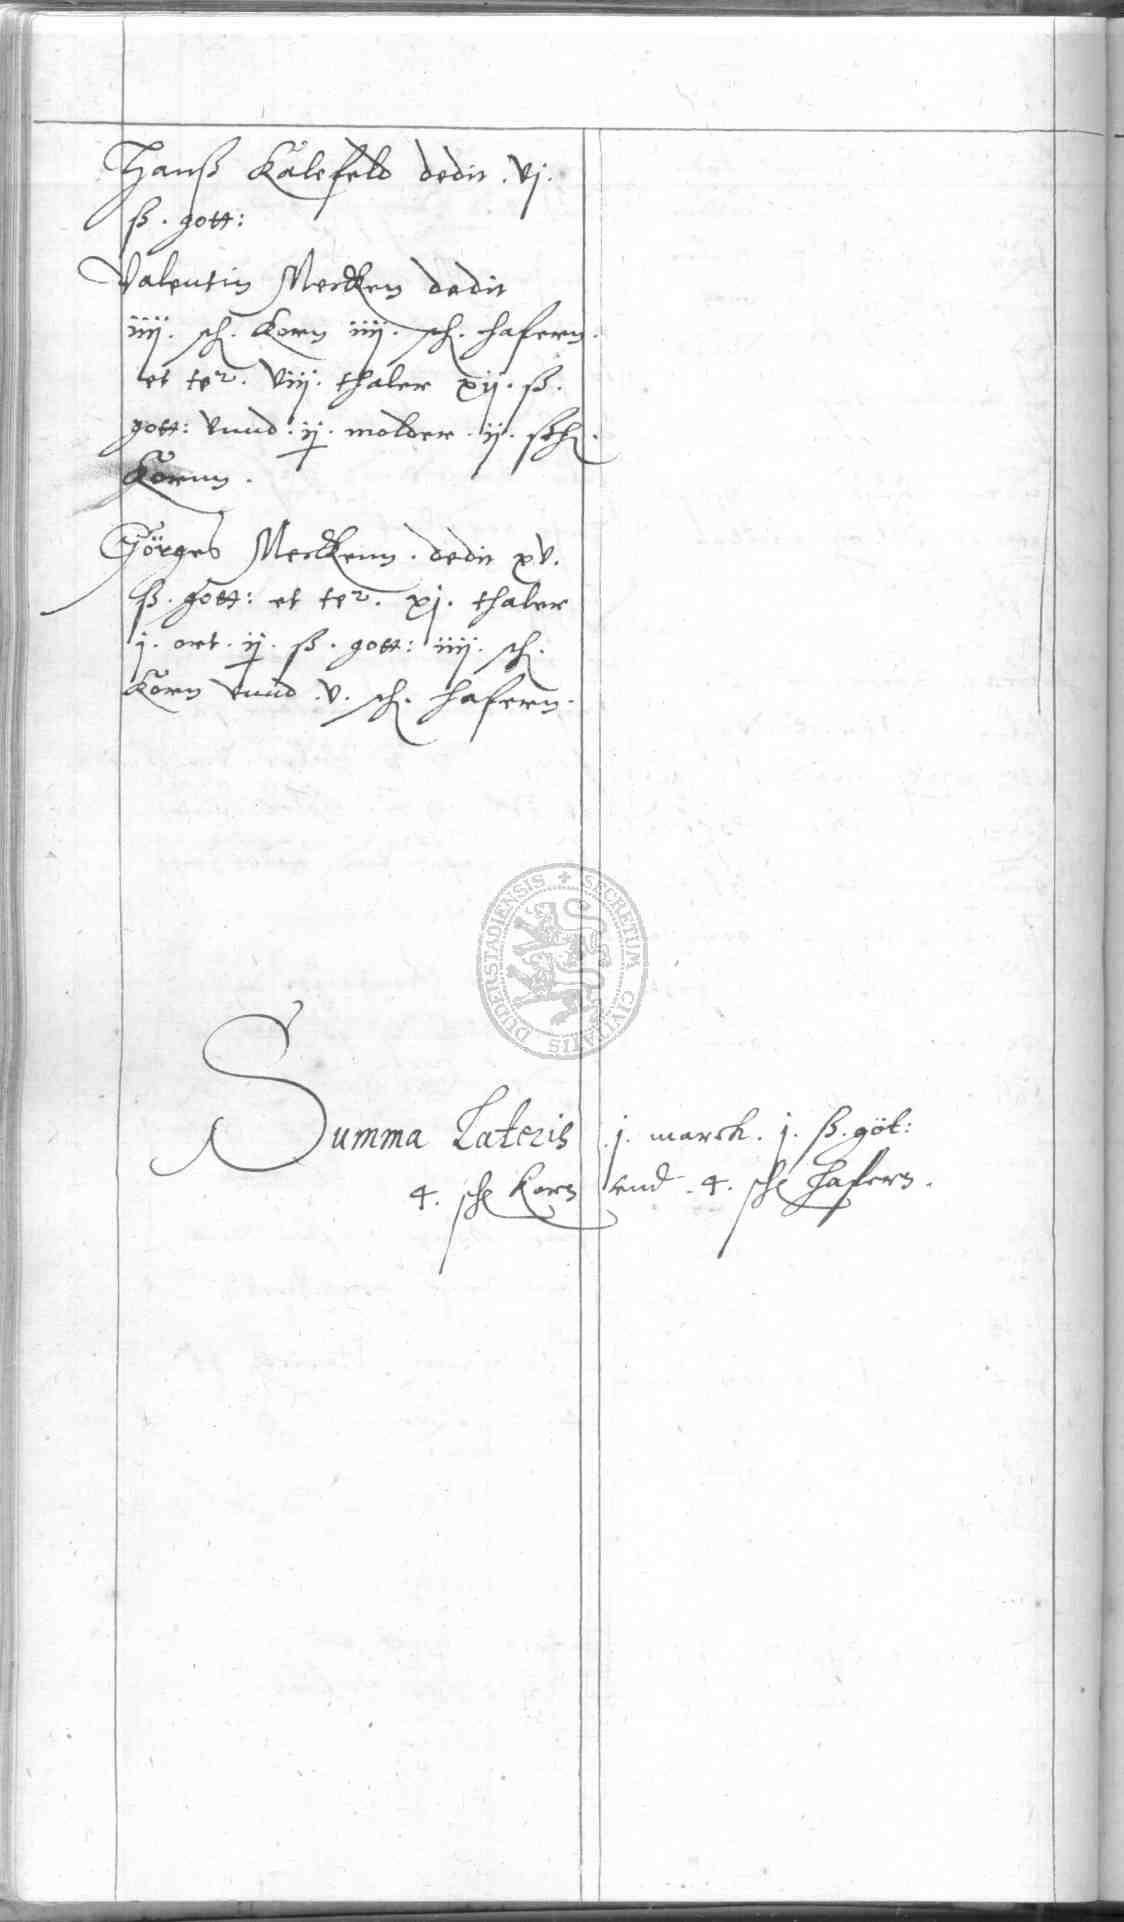 Hanß Kalefeld dedit . vj .
ß . gott:
Valentin Mecken dedit
iiij . sch . Korn iiij . sch . hafern .
et te2 . viij . thaler xij . ß .
gott: vnnd . ij . molder . ij . sch .
Kornn .
Görges Meckenn . dedit xv .
ß . gott: et te2 . xj . thaler
j . ort . ij . ß . gott: iiij . sch .
Korn vnnd . v . sch . hafern .
DUDERSTADIENSIS + SECRETUM CIVITATIS
Summa Lateris . j . marck . j . ß . göt:
4 . sch Korn vnd . 4 . sch hafern .